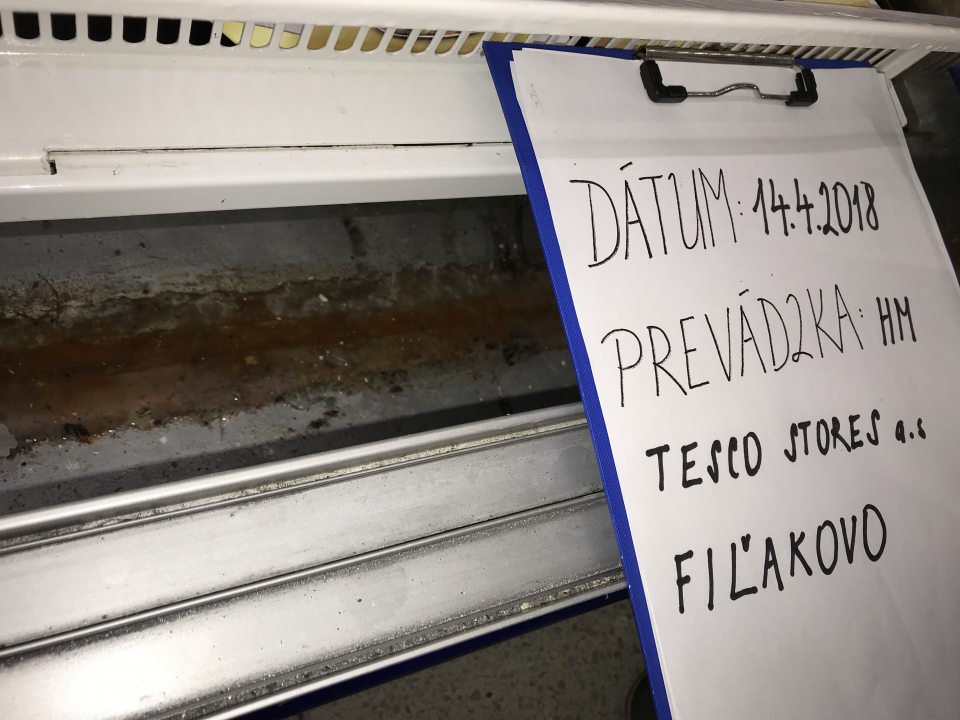 DÁTUM: 14.4.2018
PREVÁDZKA: HM
TESCO STORES a.s
FIĽAKOVO